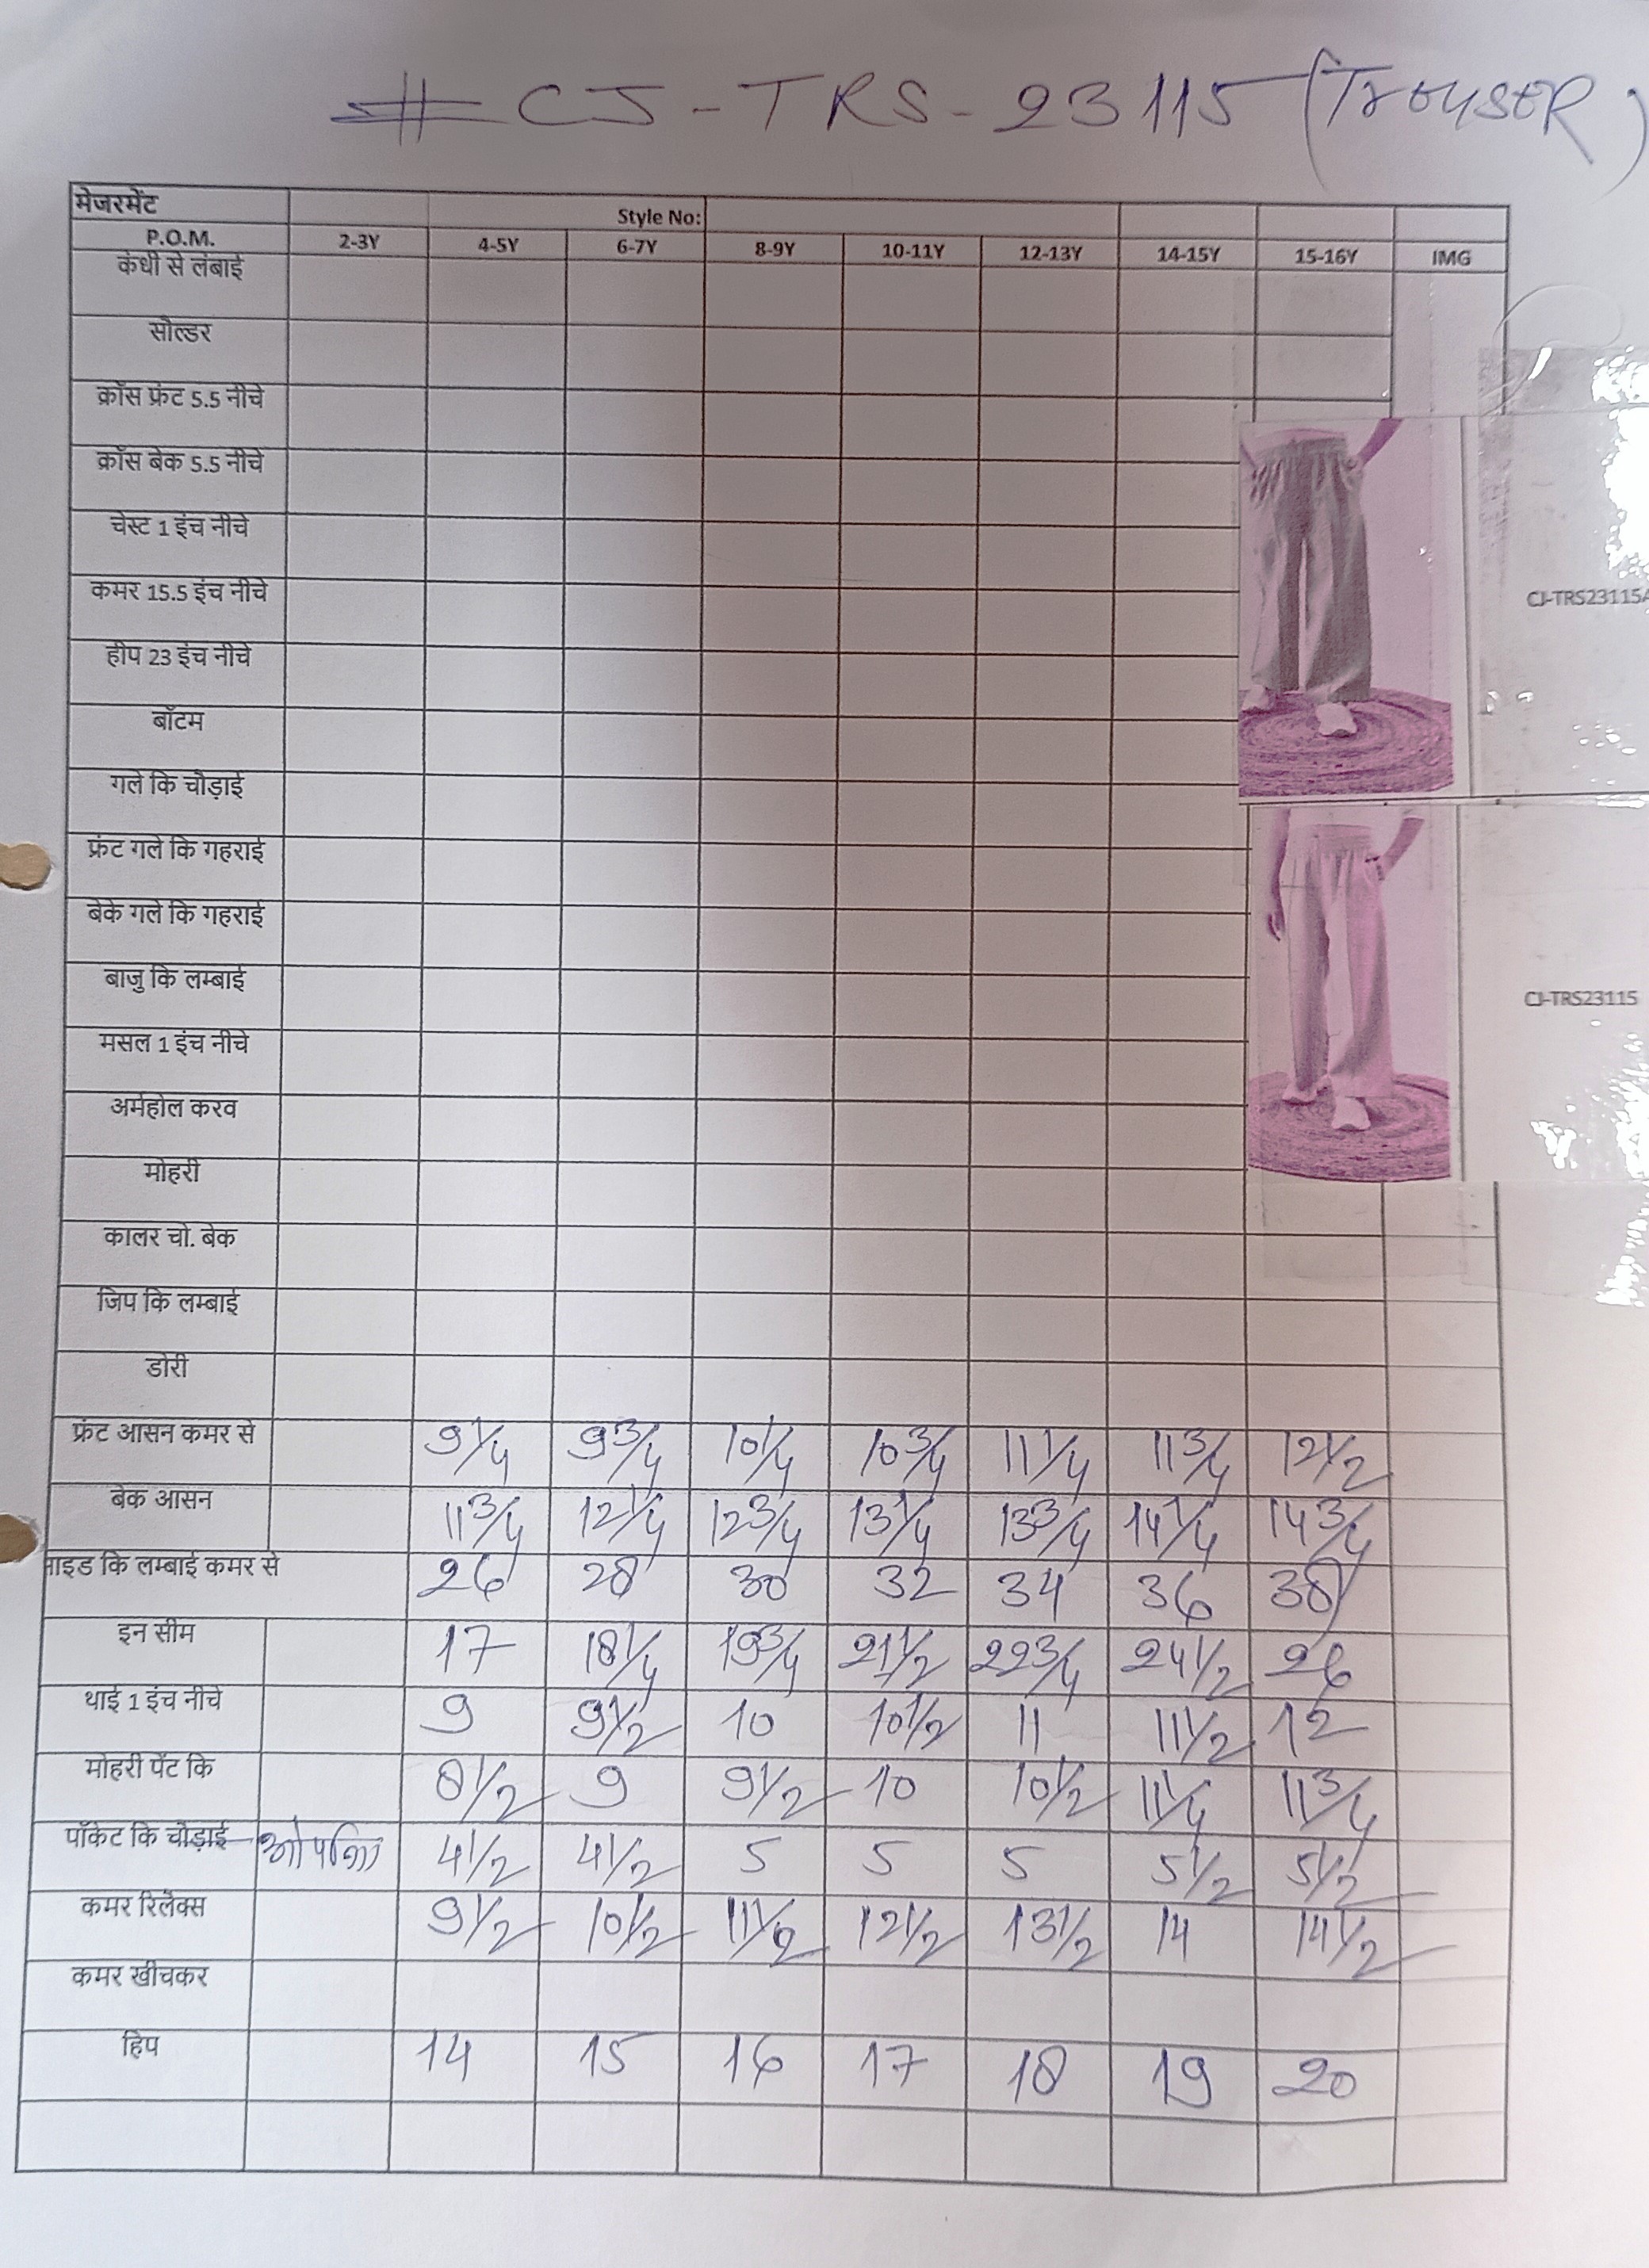 # CJ-TRS-23115 (TROUSER)
मेजरमेंट Style No:
P.O.M. 2-3Y 4-5Y 6-7Y 8-9Y 10-11Y 12-13Y 14-15Y 15-16Y IMG
कंधी से लंबाई
सोल्डर
क्रॉस फ्रंट 5.5 नीचे
क्रॉस बेक 5.5 नीचे
चेस्ट 1 इंच नीचे
कमर 15.5 इंच नीचे
CJ-TRS23115A
हीप 23 इंच नीचे
बॉटम
गले कि चौड़ाई
फ्रंट गले कि गहराई
बेके गले कि गहराई
बाजु कि लम्बाई
CJ-TRS23115
मसल 1 इंच नीचे
अर्महोल करव
मोहरी
कालर चो. बेक
जिप कि लम्बाई
डोरी
फ्रंट आसन कमर से 9 1/4 9 3/4 10 1/4 10 3/4 11 1/4 11 3/4 12 1/2
बेक आसन 11 3/4 12 1/4 12 3/4 13 1/4 13 3/4 14 1/4 14 3/4
साइड कि लम्बाई कमर से 26 28 30 32 34 36 38
इन सीम 17 18 1/4 19 3/4 21 1/2 22 3/4 24 1/2 26
थाई 1 इंच नीचे 9 9 1/2 10 10 1/2 11 11 1/2 12
मोहरी पेंट कि 8 1/2 9 9 1/2 10 10 1/2 11 1/4 11 3/4
पॉकेट कि चौड़ाई 4 1/2 4 1/2 5 5 5 5 1/2 5 1/2
कमर रिलेक्स 9 1/2 10 1/2 11 1/2 12 1/2 13 1/2 14 14 1/2
कमर खीचकर
हिप 14 15 16 17 18 19 20